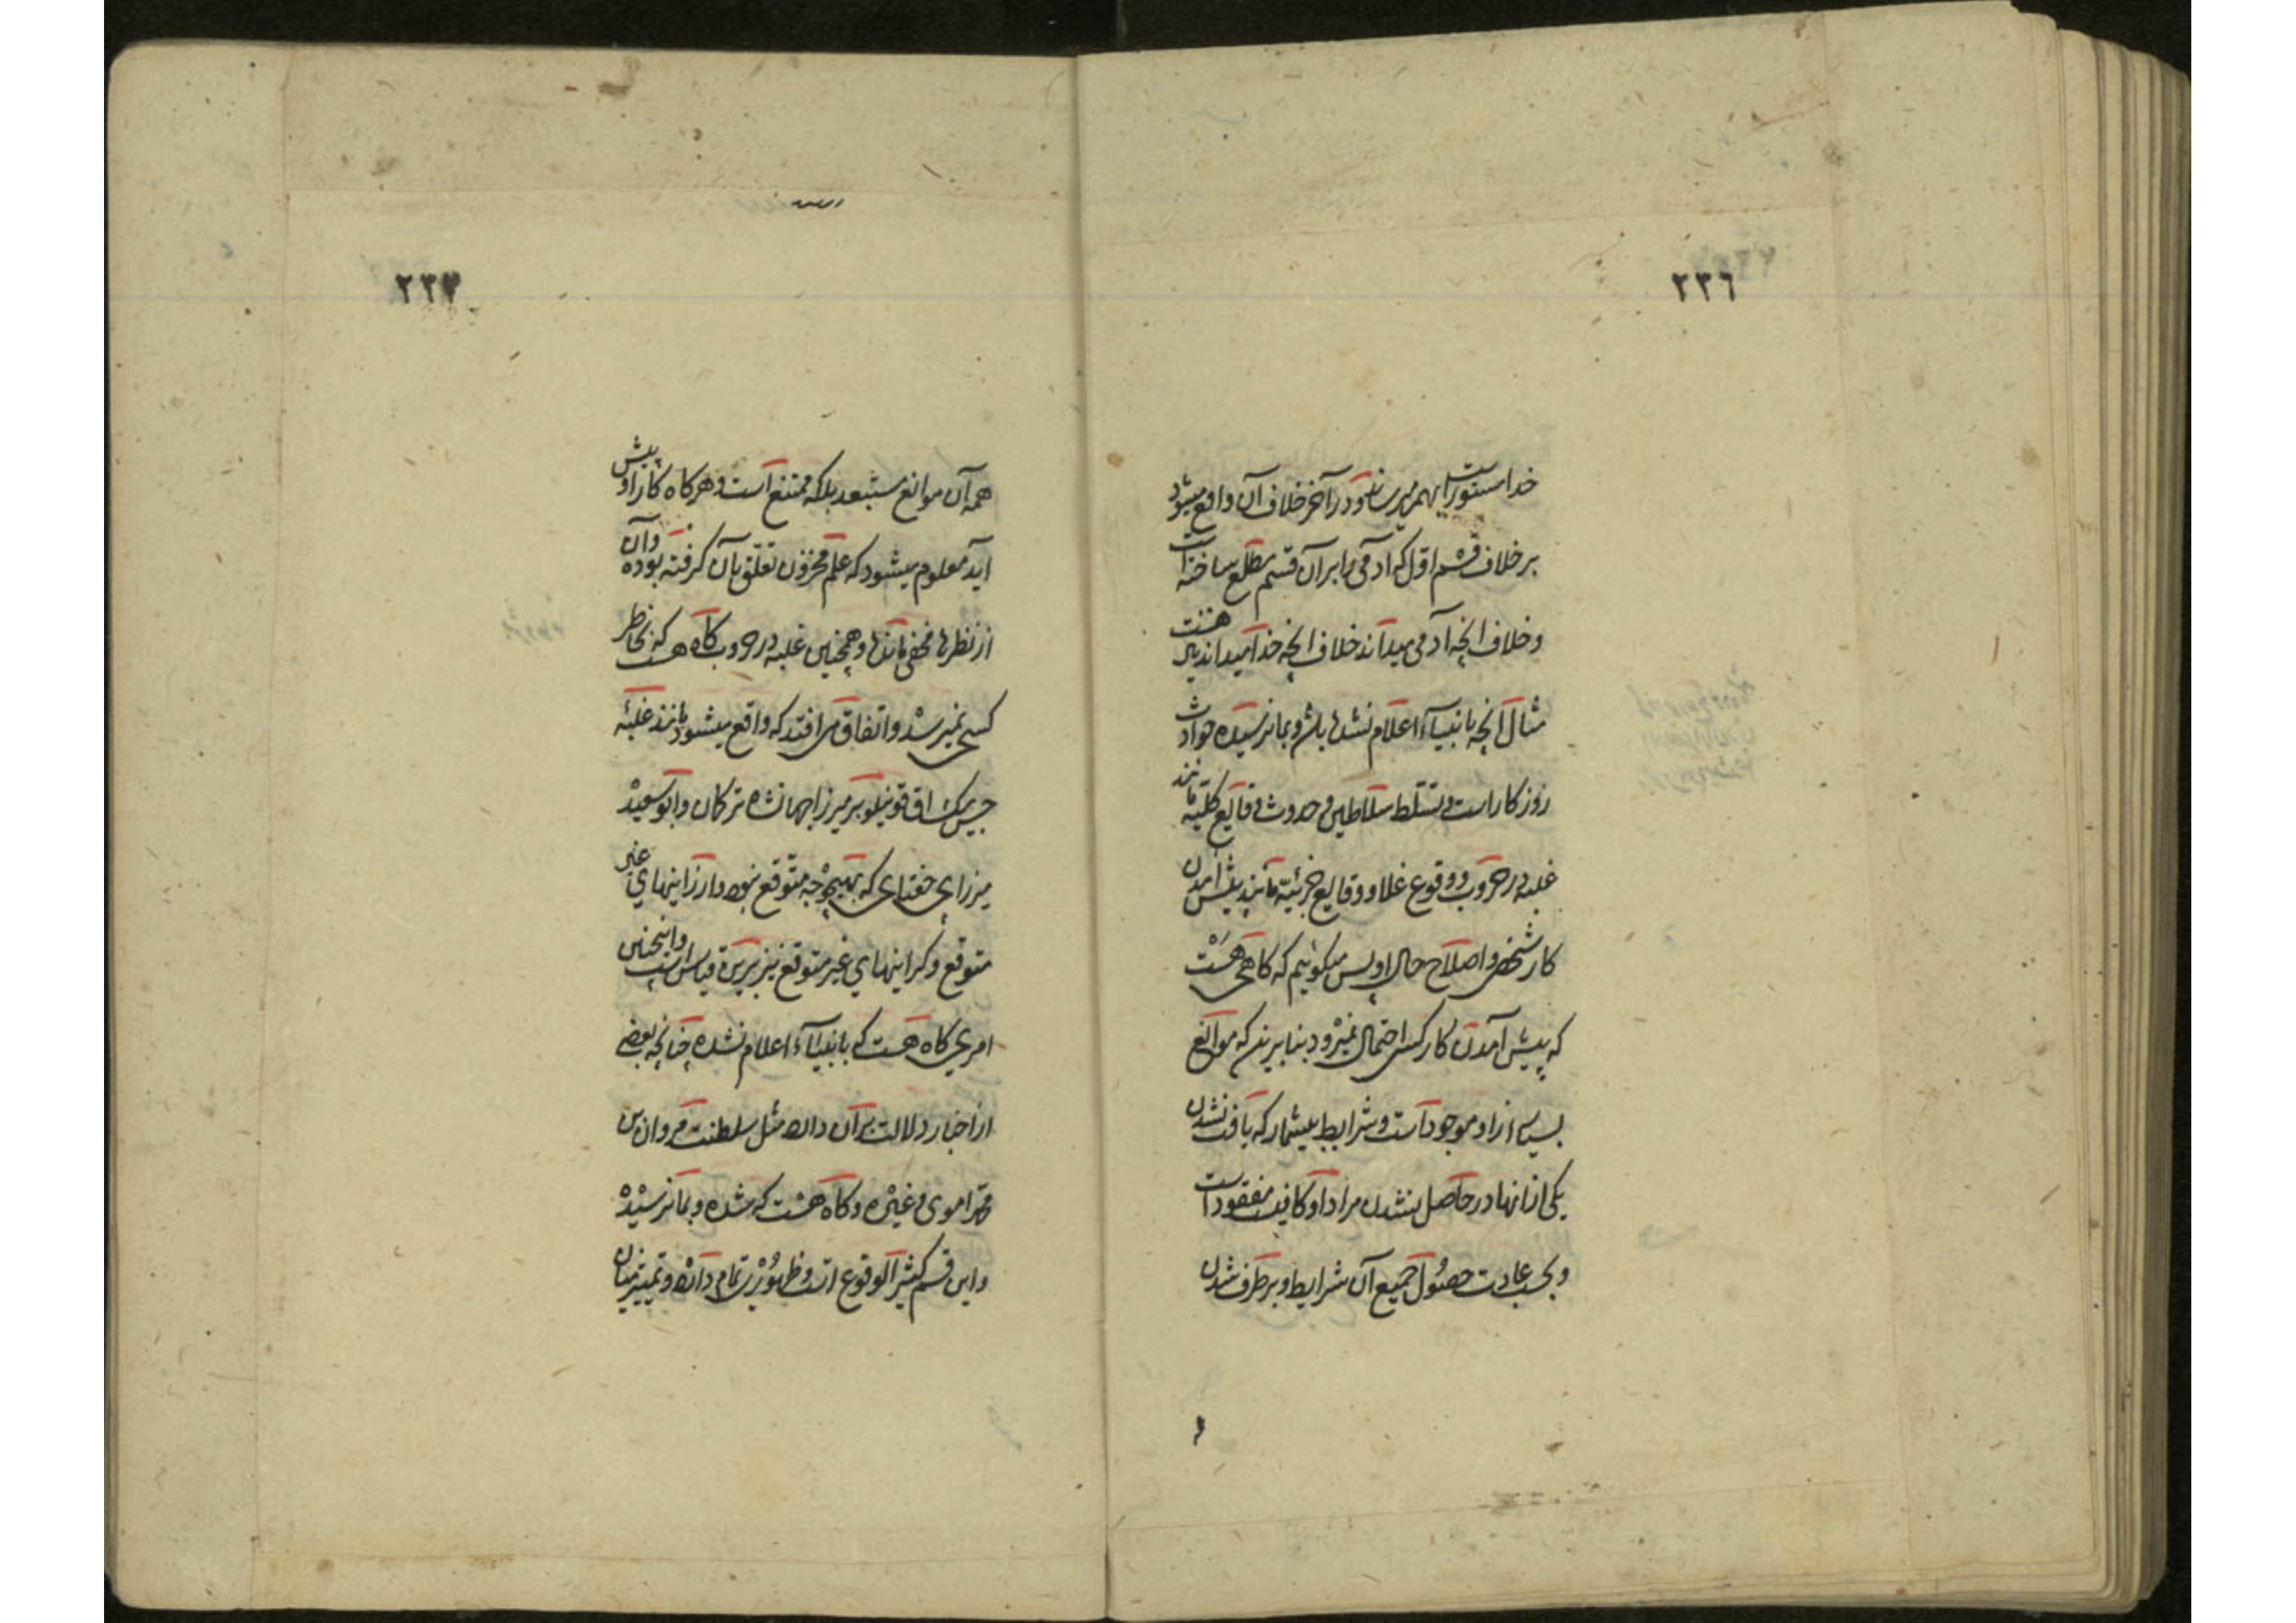 ٢٣٦
خداست مستور را بهم میرساند و در آخر خلاف آن واقع میشود
بر خلاف قسم اول که آدمی را بر آن قسم مطلع ساخته است
و خلاف انچه آدمی میداند خلاف انچه خدا میداند نیست
مثال انچه بانبیاء اعلام نشده باشد و بما نرسیده حوادث
روزکار است و تسلط سلاطین و حدوث وقایع کلیه مانند
غلبه در حروب و وقوع غلا و وقایع جزئیه مانند پیش آمدن
کار شخصی و اصلاح حال او پس میکوئیم که کاهی هست
که پیش آمدن کار کسی احتمال نمیرود بنابرین که موانع
بسیار از او موجود است و شرایط بیشمار که یافت نشدن
یکی از انها در حاصل نشدن مراد او کافیست مفقود است
و بحسب عادت حصول جمیع آن شرایط و بر طرف شدن
٢٣٧
همه آن موانع مستبعد بلکه ممتنع است و هرکاه کار او پیش
آید معلوم میشود که علم مخزون تعلق بان کرفته بوده و آن
از نظرها مخفی مانده و همچنین غلبه در حروب کاه هست که بخاطر
کسی نمیرسد و اتفاق می افتد که واقع میشود مانند غلبهٔ
حسن بیک اق قوینلو بر میرزا جهانشاه ترکمان و ابو سعید
میرزای جغتای که بهیچ وجه متوقع نبود و ارزانیهای غیر
متوقع و کرانیهای غیر متوقع نیز برین قیاس است و همچنین
امری کاه هست که بانبیاء اعلام نشده چنانچه بعضی
از اخبار دلالت بر آن دارد مثل سلطنت مروان بن
محمد اموی و غیره و کاه هست که شده و بما نرسیده
و این قسم کثیر الوقوع است و ظهور تمام دارد و تمییز میان